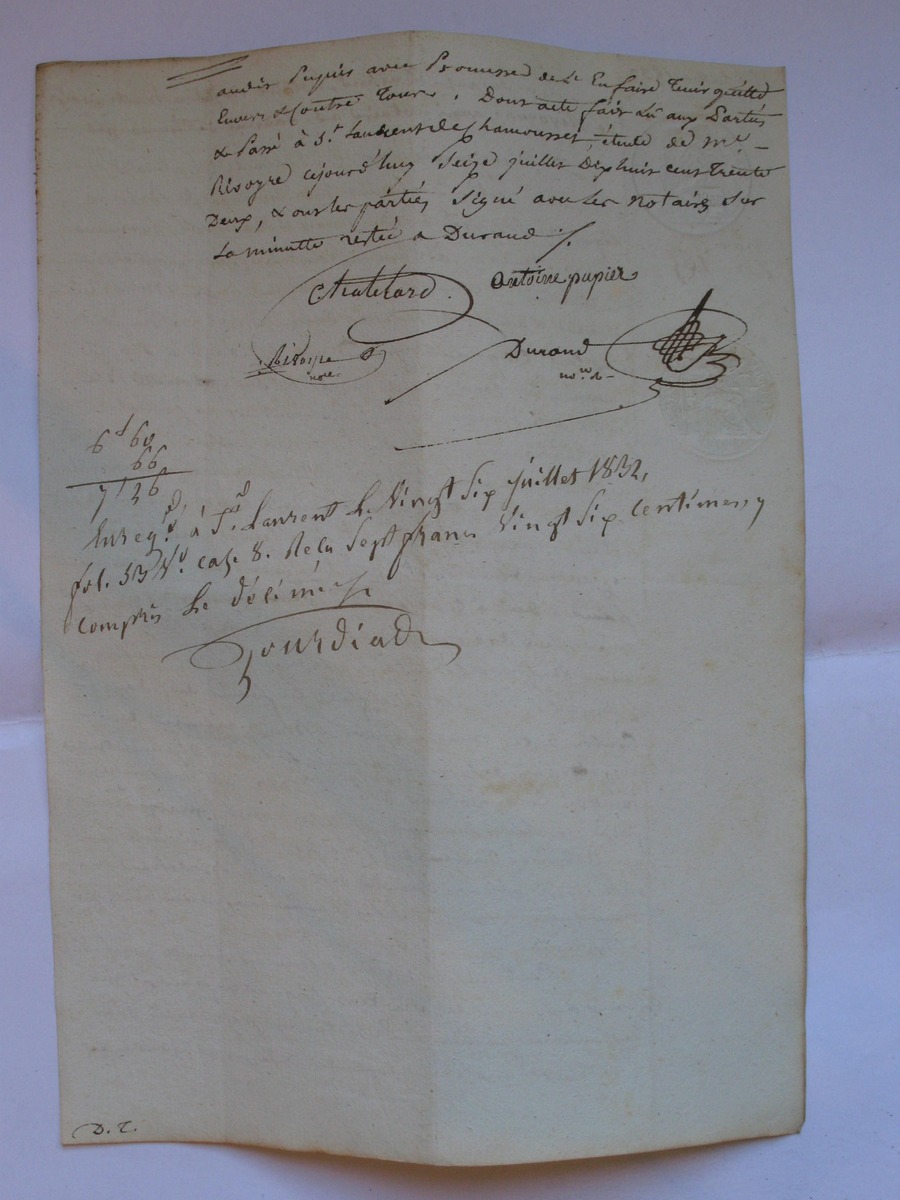 audit Pupier avec Promesse de Le En faire Tenir quitte
Envers & Contre Tous. Dont acte fait Lu aux Parties
& Passé à St. Laurent de Chamousset, étude de Me. -
Rivoyre cejourd'huy Seize juillet Dixhuit cent Trente
Deux, & ont les parties Signé avec les notaires Sur
La minutte restée a Durand /.
Chatelard. Antoine pupier
Rivoyre nore. Durand
nore
6f 60
66
7f 26
Enregté. à St. Laurent Le Vingt Six juillet 1832,
fol. 53 Vo. case 8. Reçu Sept francs Vingt Six Centimes, y
compris Le Décime /.
D. T.